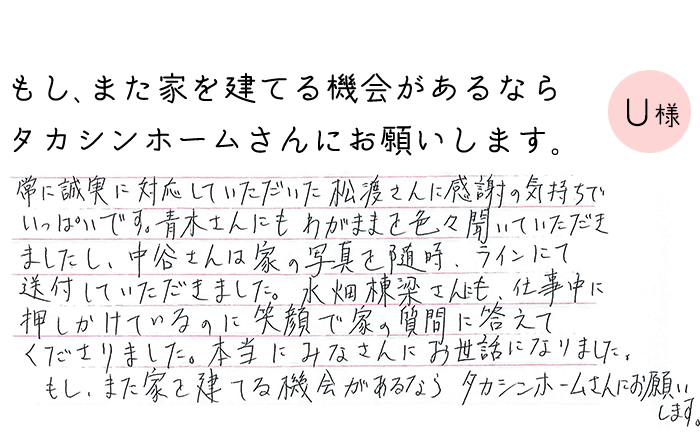 もし、また家を建てる機会があるなら
タカシンホームさんにお願いします。
U様
常に誠実に対応していただいた松渡さんに感謝の気持ちで
いっぱいです。青木さんにもわがままを色々聞いていただき
ましたし、中谷さんは家の写真を随時、ラインにて
送付していただきました。水畑棟梁さんにも、仕事中に
押しかけているのに笑顔で家の質問に答えて
くださりました。本当にみなさんにお世話になりました。
もし、また家を建てる機会があるなら タカシンホームさんにお願い
します。